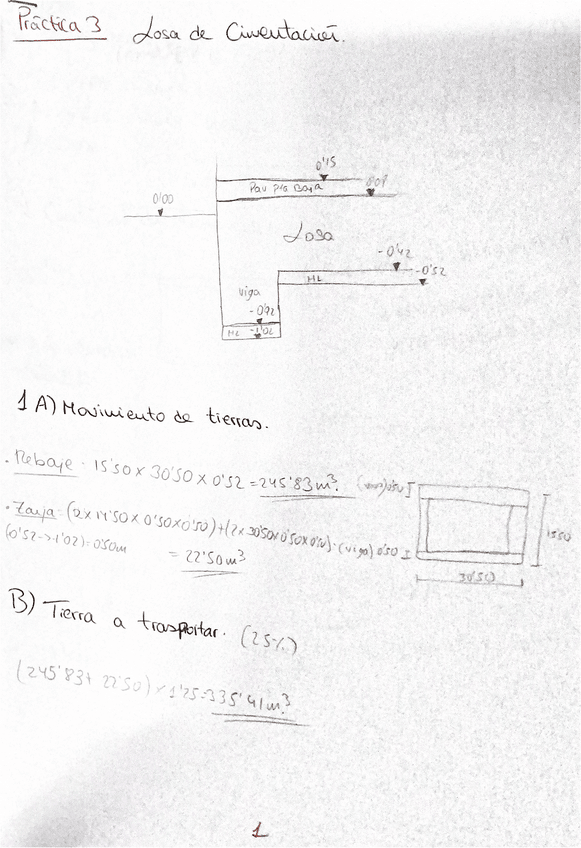 Práctica 3 Losa de Cimentación.
0'15
Pav pta Baja
0'00
Losa
-0'42
-0'52
ML
viga
-0'92
ML -1'02
1 A) Movimiento de tierras.
· Rebaje · 15'50 x 30'50 x 0'52 = 245'83 m³.
· Zanja · (2 x 14'50 x 0'50 x 0'50) + (2 x 30'50 x 0'50 x 0'50) · (viga) 0'50
(0'52 -> 1'02) = 0'50 m
= 22'50 m³
15'50
30'50
B) Tierra a transportar. (25%)
(245'83 + 22'50) x 1'25 = 335'41 m³
1